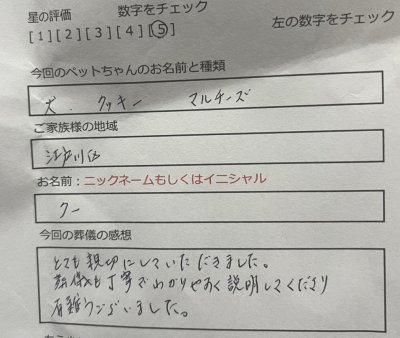 星の評価 数字をチェック
[1][2][3][4][5] 左の数字をチェック
今回のペットちゃんのお名前と種類
犬. クッキー マルチーズ
ご家族様の地域
江戸川区
お名前：ニックネームもしくはイニシャル
クー
今回の葬儀の感想
とても親切にしていただきました。
葬儀も丁寧でわかりやすく説明してくださり
有難うございました。